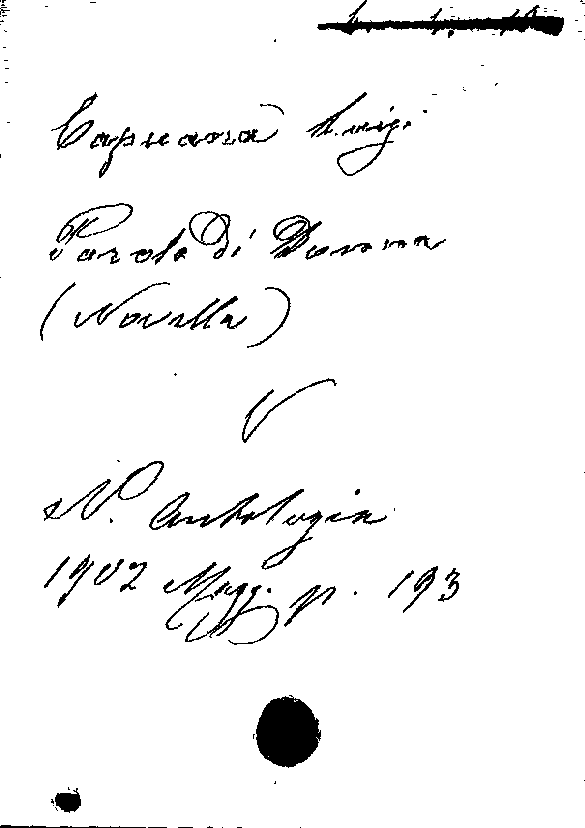 Capuana Luigi
Parola di Donna
(Novella)
V
N. Antologia
1902 Magg. p. 193